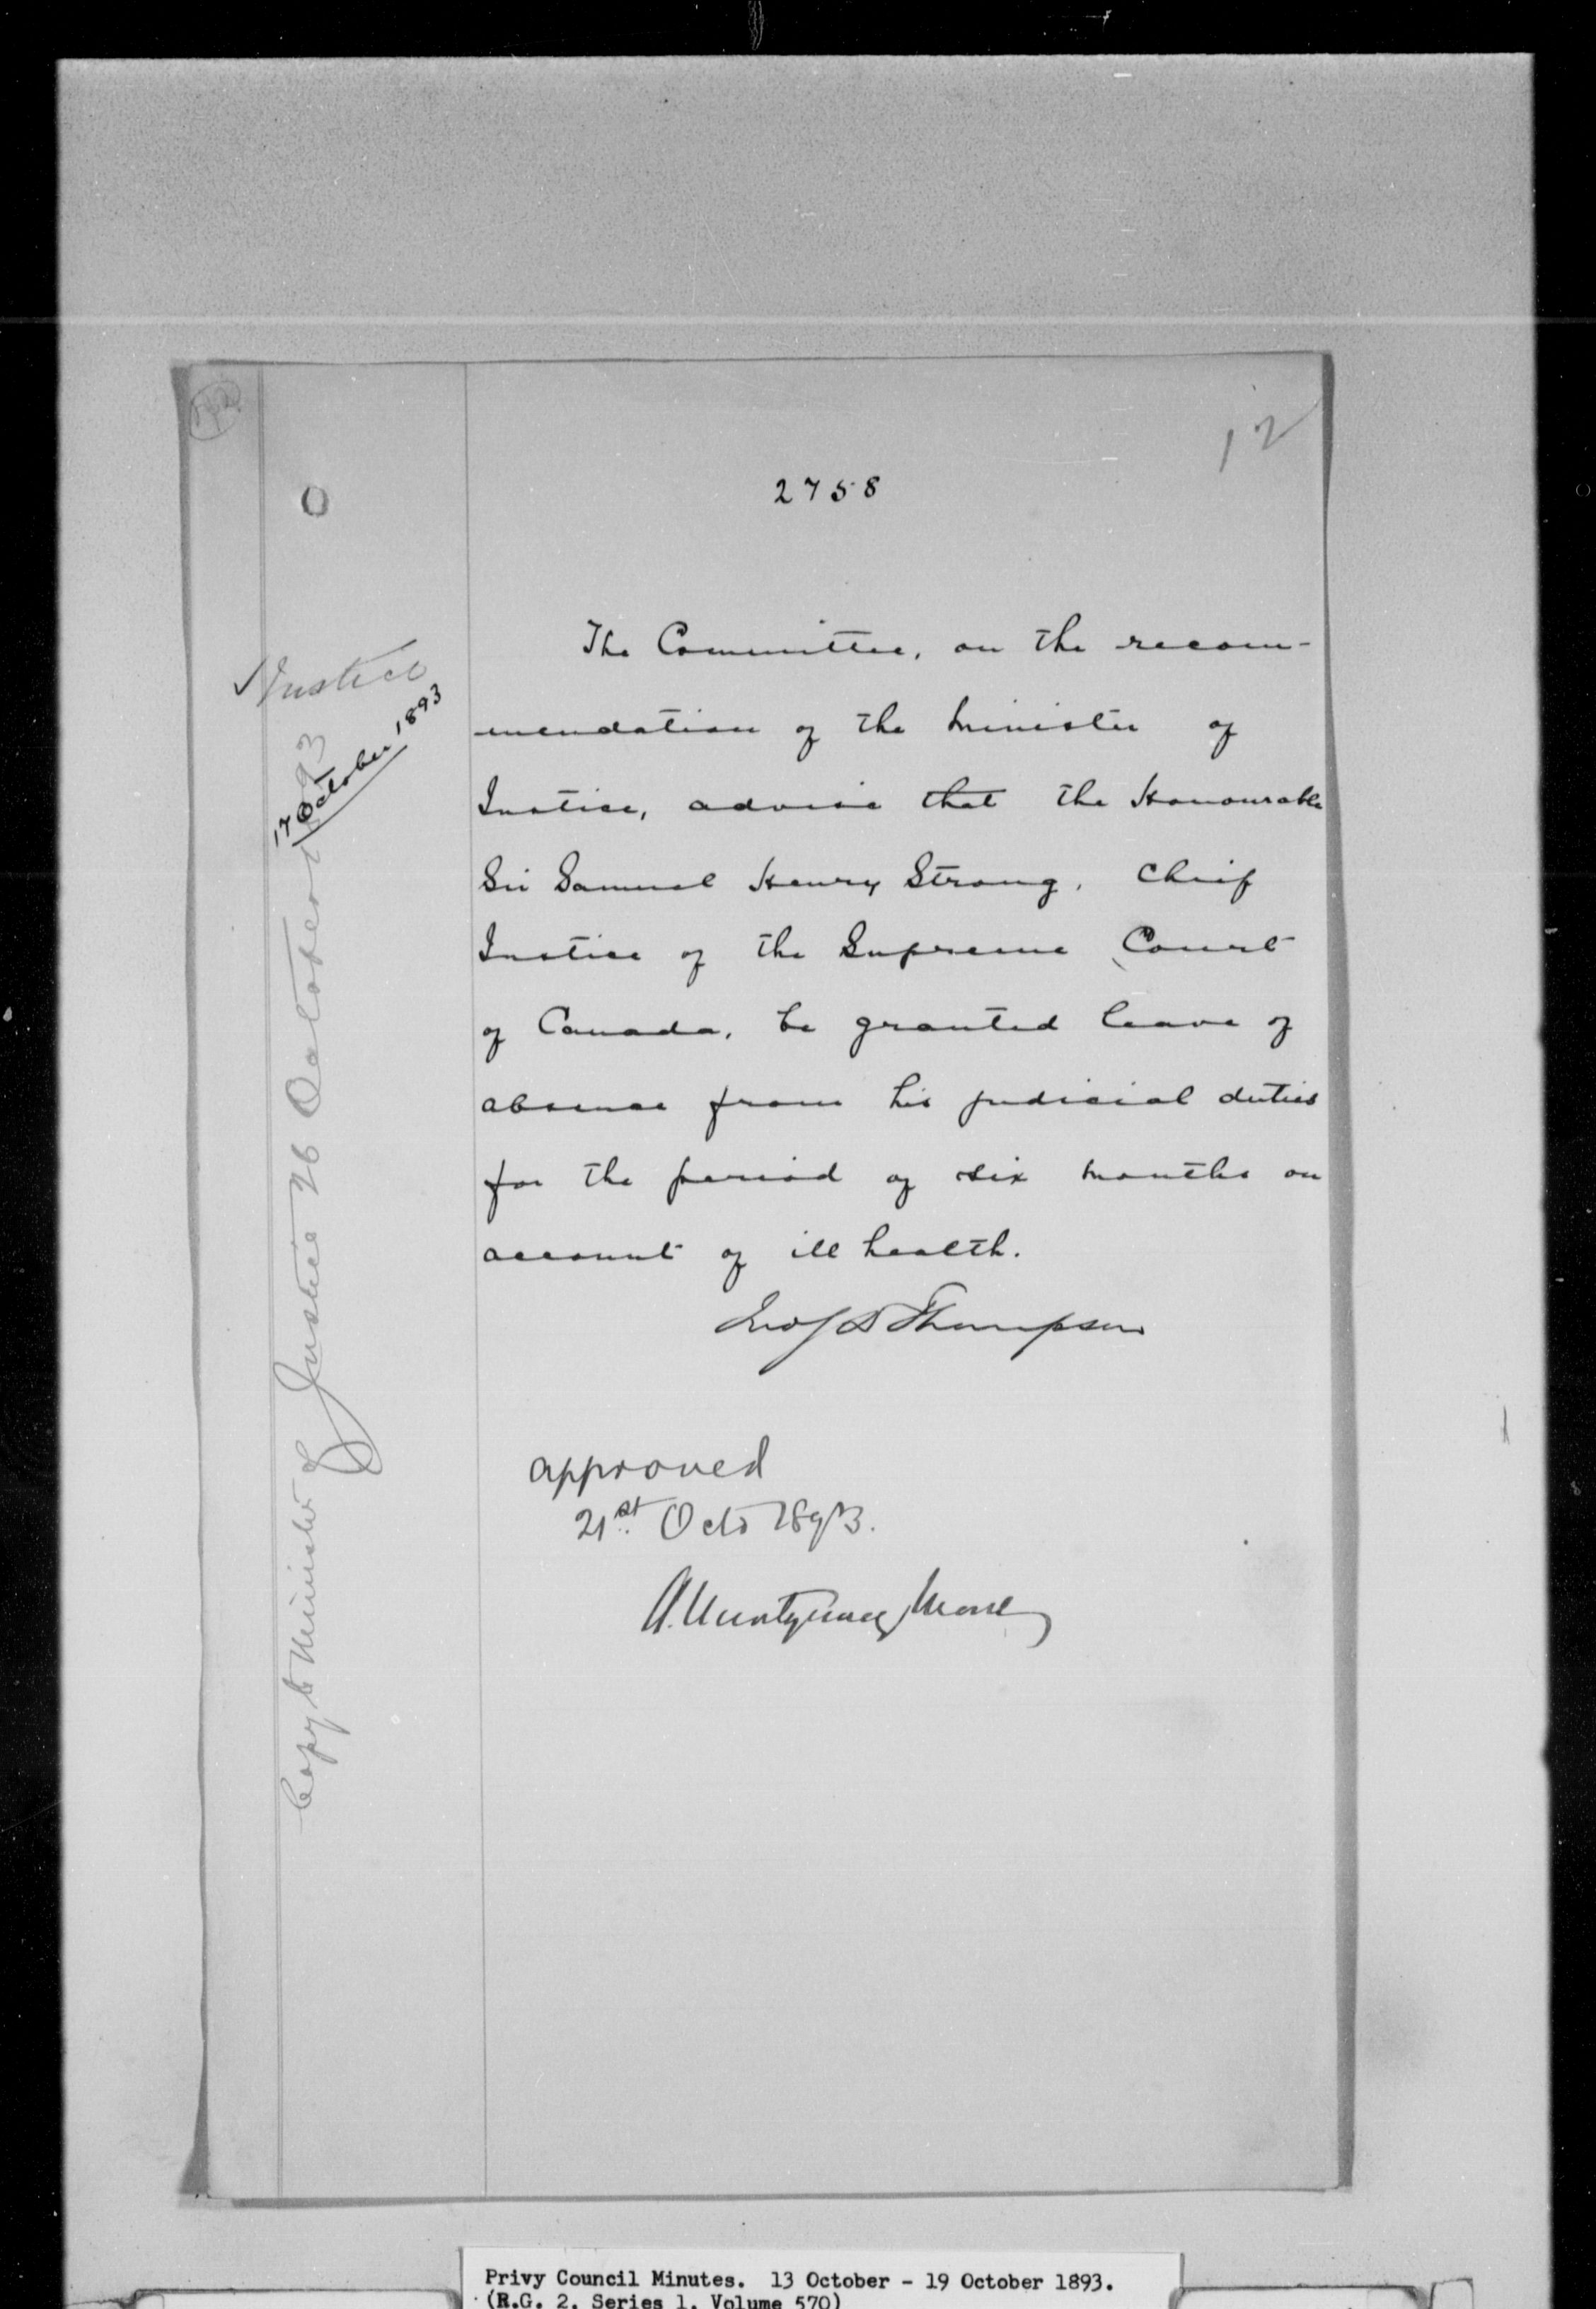 12
2758
Justice
17 October 1893
The Committee, on the recom-
-mendation of the Minister of
Justice, advise that the Honourable
Sir Samuel Henry Strong, Chief
Justice of the Supreme Court
of Canada, be granted leave of
absence from his judicial duties
for the period of six months on
account of ill health.
Jno S D Thompson
approved
21st Octo 1893.
A. Montgomery Moore
Copy to Minister of Justice 26 October 93
Privy Council Minutes. 13 October - 19 October 1893.
(R.G. 2, Series 1, Volume 570)